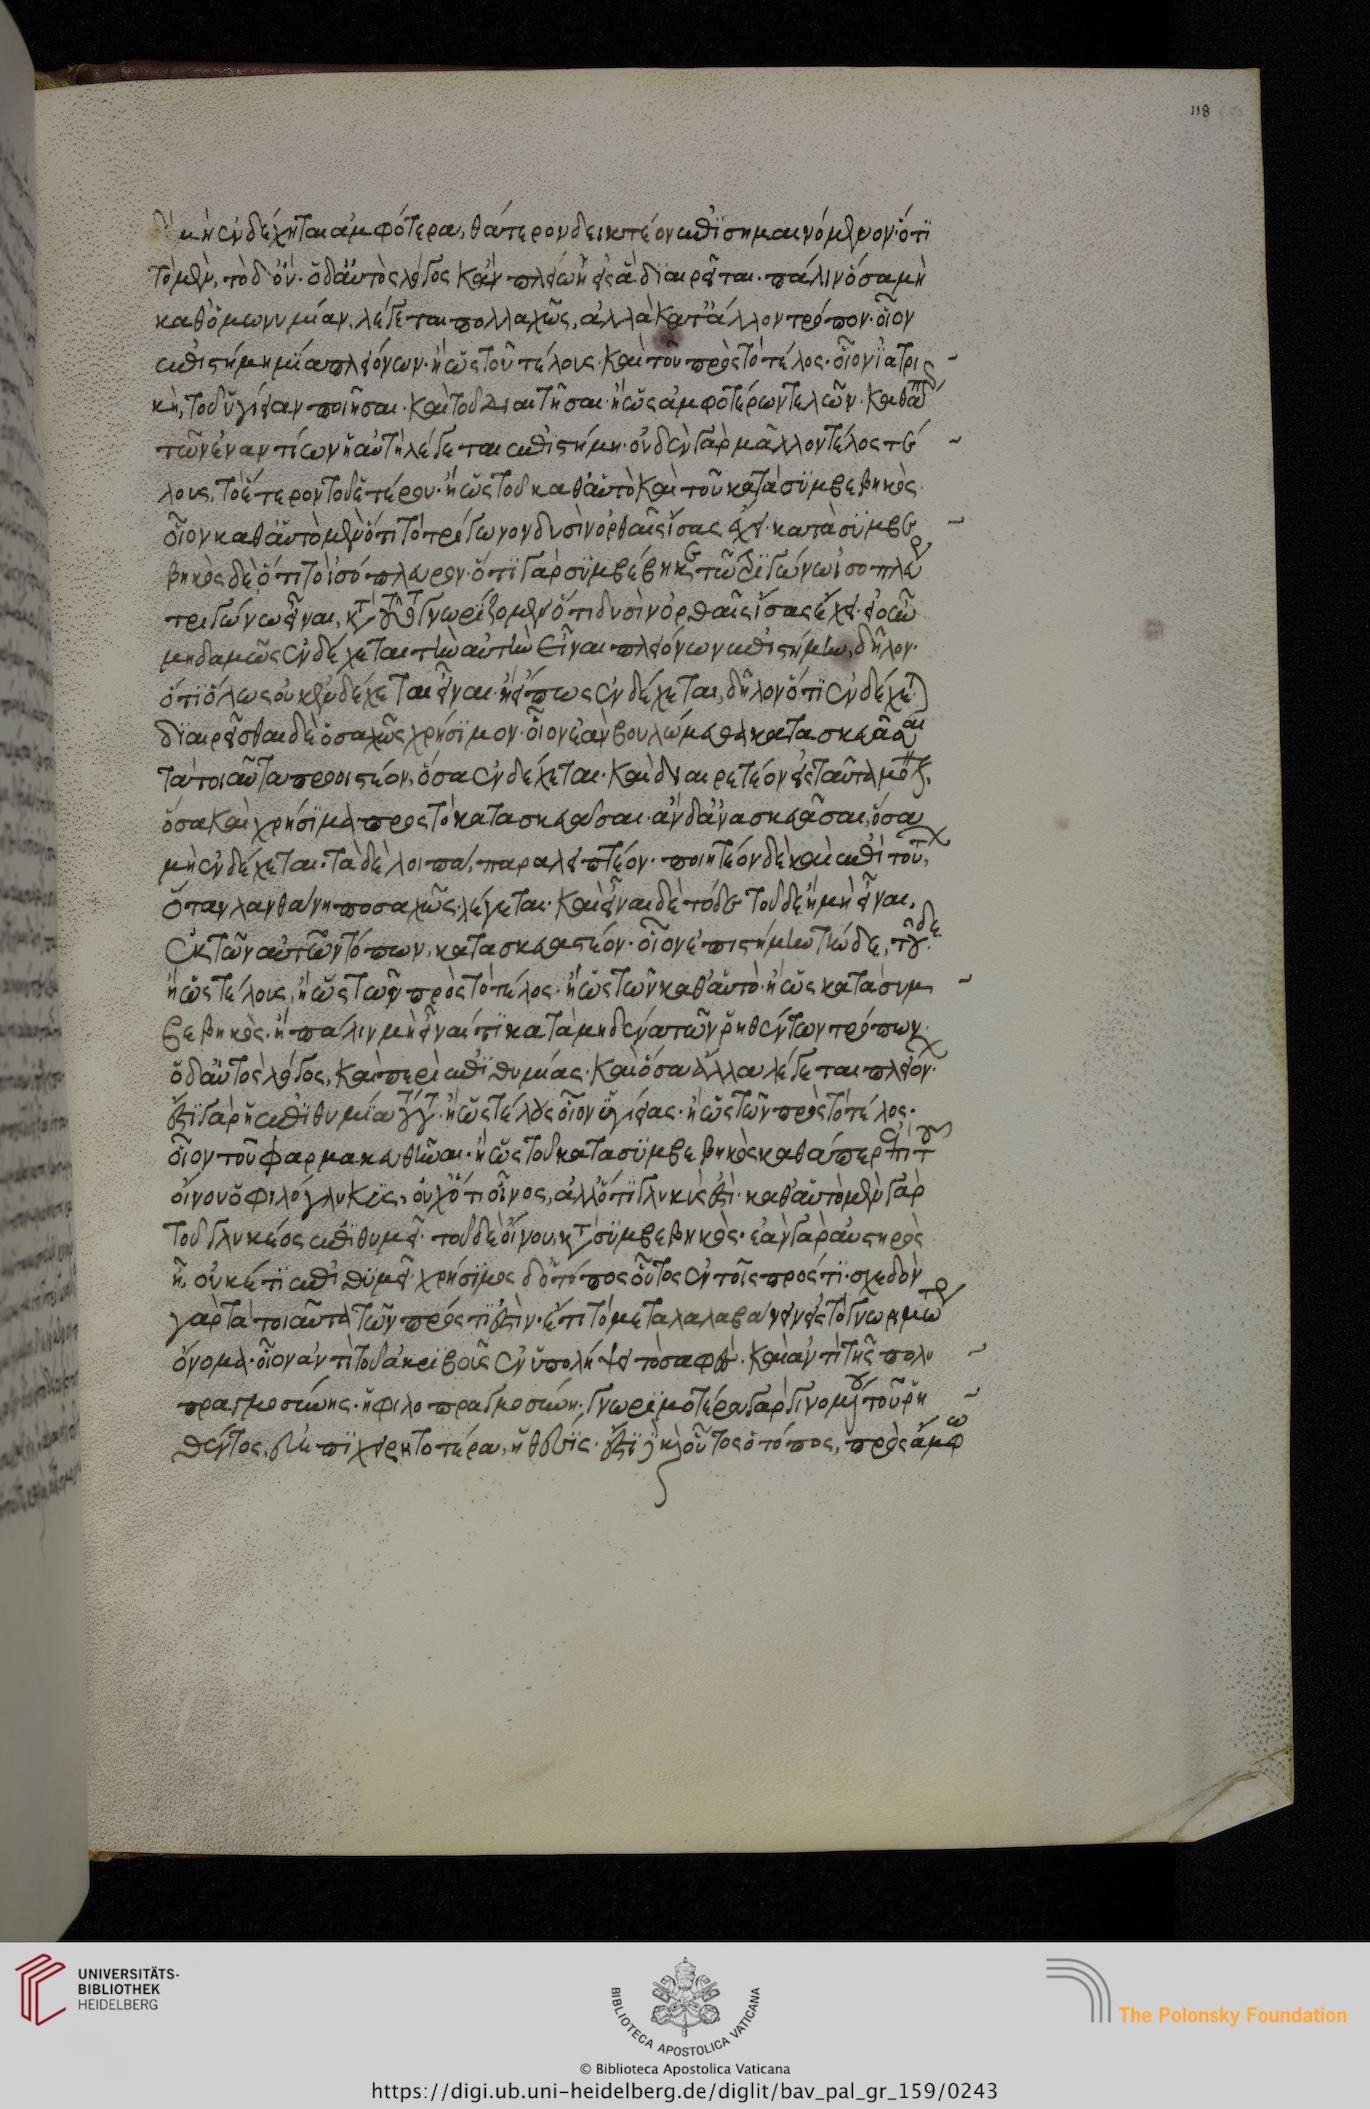 δὲ μὴ ἐνδέχηται ἀμφότερα, θάτερον δεικτέον ἐπϊσημαινόμενον· ὅτι
τὸ μὲν, τὸ δ' ὄν. ὁ δ' αὐτὸς λόγος κἂν πλείω ἦ εἰς ἃ διαιρεῖται. πάλιν ὅσα μὴ
καθ' ὁμωνυμίαν λέγεται πολλαχῶς, ἀλλὰ κατ' ἄλλον τρόπον· οἷον
ἐπιστήμη μία πλειόνων· ἢ ὡς τοῦ τέλους· καὶ τοῦ πρὸς τὸ τέλος· οἷον ϊατρι
κὴ, τοῦ ὑγίειαν ποιῆσαι· καὶ τοῦ διαιτῆσαι· ἢ ὡς ἀμφοτέρων τελῶν· καθάπερ
τῶν ἐναντίων ἡ αὐτὴ λέγεται ἐπιστήμη· οὐδὲν γὰρ μᾶλλον τέλος τέ
λους, τὸ ἕτερον τοῦ ἑτέρου· ἢ ὡς τοῦ καθ' αὑτὸ καὶ τοῦ κατὰ συμβεβηκός·
οἷον καθ' αὑτὸ μὲν ὅτι τὸ τρίγωνον δυσὶν ὀρθαῖς ἴσας ἔχει· κατὰ συμβε
βηκὸς δὲ, ὅτι τὸ ἰσόπλευρον· ὅτι γὰρ συμβέβηκε τῶ τριγώνω ἰσοπλεύρω
τριγώνω εἶναι, κατὰ τοῦτο γνωρίζομεν ὅτι δυσὶν ὀρθαῖς ἴσας ἔχει· εἰ οὖν
μηδαμῶς ἐνδέχεται τὴν αὐτὴν εἶναι πλειόνων ἐπιστήμην, δῆλον·
ὅτι ὅλως οὐκ ἐνδέχεται εἶναι· ἢ εἴ πως ἐνδέχεται, δῆλον ὅτι ἐνδέχεται·
διαιρεῖσθαι δὲ ὁσαχῶς χρήσιμον· οἷον ἐὰν βουλώμεθα κατασκευάσαι
τὰ τοιαῦτα προοιστέον, ὅσα ἐνδέχεται· καὶ διαιρετέον εἰς ταῦτα μόνον,
ὅσα καὶ χρήσιμα πρὸς τὸ κατασκευάσαι· ἂν δ' ἀνασκευάσαι, ὅσα
μὴ ἐνδέχεται· τὰ δὲ λοιπὰ, παραλειπτέον· ποιητέον δὲ καὶ ἐπὶ τούτων,
ὅταν λανθάνη ποσαχῶς λέγεται· καὶ εἶναι δὲ τόδε τοῦδε ἢ μὴ εἶναι,
ἐκ τῶν αὐτῶν τόπων, κατασκευαστέον· οἷον ἐπιστήμην τήνδε, τοῦδε·
ἢ ὡς τέλους, ἢ ὡς τῶν πρὸς τὸ τέλος· ἢ ὡς τῶν καθ' αὑτό· ἢ ὡς κατὰ συμ
βεβηκός· ἢ πάλιν μὴ εἶναί τι κατὰ μηδένα τῶν ῥηθέντων τρόπων·
ὁ δ' αὐτὸς λόγος, καὶ περὶ ἐπιθυμίας· καὶ ὅσα ἄλλα λέγεται πλειόνων·
ἔστι γὰρ ἡ ἐπιθυμία τούτου· ἢ ὡς τέλους οἷον ὑγιείας· ἢ ὡς τῶν πρὸς τὸ τέλος·
οἷον τοῦ φαρμακευθῆναι· ἢ ὡς τοῦ κατὰ συμβεβηκὸς καθάπερ ἐπὶ τοῦ
οἴνου ὁ φιλόγλυκυς, οὐχ ὅτι οἶνος, ἀλλ' ὅτι γλυκύς ἐστι· καθ' αὑτὸ μὲν γὰρ
τοῦ γλυκέος ἐπιθυμεῖ· τοῦ δὲ οἴνου, κατὰ συμβεβηκός· ἐὰν γὰρ αὐστηρὸς
ἦ οὐκέτι ἐπιθυμεῖ· χρήσιμος δ' ὁ τόπος οὗτος ἐν τοῖς πρός τι· σχεδὸν
γὰρ τὰ τοιαῦτα τῶν πρός τί ἐστιν· ἔτι τὸ μεταλαμβάνειν εἰς τὸ γνωριμώτερον
ὄνομα· οἷον ἀντὶ τοῦ ἀκριβοῦς ἐν ὑπολήψει τὸ σαφές· καὶ ἀντὶ τῆς πολυ
πραγμοσύνης· ἡ φιλοπραγμοσύνη· γνωριμοτέρου γὰρ γινομένου τοῦ ῥη
θέντος, εὐεπιχειρητοτέρα, ἡ θέσις· ἔστι δὲ καὶ οὗτος ὁ τόπος, πρὸς ἄμφω
118
UNIVERSITÄTS-
BIBLIOTHEK
HEIDELBERG
BIBLIOTECA APOSTOLICA VATICANA
The Polonsky Foundation
© Biblioteca Apostolica Vaticana
https://digi.ub.uni-heidelberg.de/diglit/bav_pal_gr_159/0243